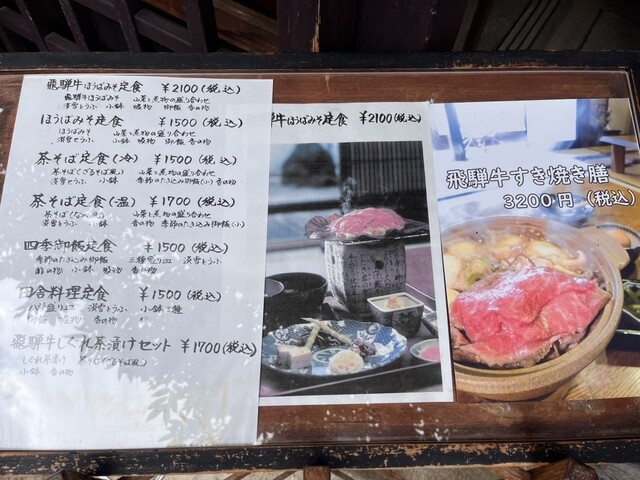 飛騨牛ほうばみそ定食 ¥2100(税込)
飛騨牛ほうばみそ 山菜と煮物の盛り合わせ
淡雪とうふ 小鉢 吸物 御飯 香の物
ほうばみそ定食 ¥1500(税込)
ほうばみそ 山菜と煮物の盛り合わせ
淡雪とうふ 小鉢 吸物 御飯 香の物
茶そば定食(冷) ¥1500(税込)
茶そば(ざるそば風) 山菜と煮物の盛り合わせ
淡雪とうふ 小鉢 季節のたきこみ御飯(小) 香の物
茶そば定食(温) ¥1700(税込)
山菜と煮物の盛り合わせ
淡雪とうふ 小鉢 香の物 季節のたきこみ御飯(小)
四季御飯定食 ¥1500(税込)
季節のたきこみ御飯 三種盛り皿 淡雪とうふ
小鉢 吸物 香の物
田舎料理定食 ¥1500(税込)
盛り皿 淡雪とうふ 小鉢三種
御飯 吸物 香の物
飛騨牛しぐれ茶漬けセット ¥1700(税込)
しぐれ茶漬け 茶そば(ざるそば風)
小鉢 香の物
牛ほうばみそ定食 ¥2100(税込)
飛騨牛すき焼き膳
3200円(税込)